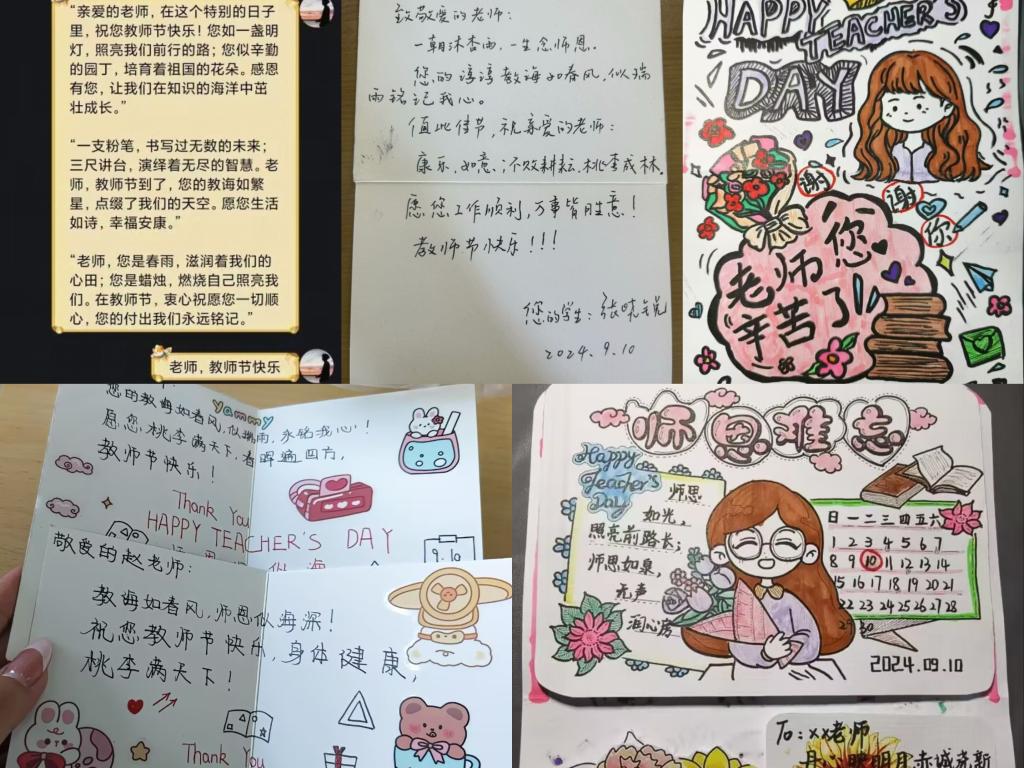 “亲爱的老师，在这个特别的日子
里，祝您教师节快乐！您如一盏明
灯，照亮我们前行的路；您似辛勤
的园丁，培育着祖国的花朵。感恩
有您，让我们在知识的海洋中茁
壮成长。”
“一支粉笔，书写过无数的未来；
三尺讲台，演绎着无尽的智慧。老
师，教师节到了，您的教诲如繁
星，点缀了我们的天空。愿您生活
如诗，幸福安康。”
“老师，您是春雨，滋润着我们的
心田；您是蜡烛，燃烧自己照亮我
们。在教师节，衷心祝愿您一切顺
心，您的付出我们永远铭记。”
老师，教师节快乐
致敬爱的老师：
一朝沐杏雨，一生念师恩。
您的谆谆教诲如春风，似瑞
雨铭记我心。
值此佳节，祝亲爱的老师：
康乐，如意；不败耕耘，桃李成林。
愿您工作顺利，万事皆胜意！
教师节快乐！！！
您的学生：张
2024.9.10
HAPPY
TEACHER'S
DAY
谢
谢
你
您
老师
辛苦了
您的教诲如春风，似瑞雨，永铭我心！
愿您桃李满天下，春晖遍四方，
教师节快乐！
yammy
Thank You
HAPPY TEACHER'S DAY
9.10
敬爱的赵老师：
教诲如春风，师恩似海深！
祝您教师节快乐，身体健康，
桃李满天下！
Thank You
师恩难忘
Happy
Teacher's
Day
师恩
如光，
照亮前路长；
师恩如泉，
无声
润心房
日一二三四五六
1 2 3 4 5 6 7
8 9 10 11 12 13 14
15 16 17 18 19 20 21
22 23 24 25 26 27 28
29 30
2024.09.10
To：xx老师